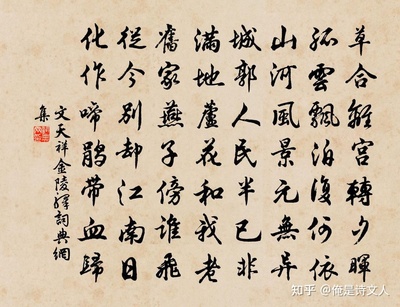 草合離宮轉夕暉
孤雲飄泊復何依
山河風景元無異
城郭人民半已非
滿地蘆花和我老
舊家燕子傍誰飛
從今別却江南日
化作啼鵑帶血歸
文天祥金陵驛詞典網
集
知乎 @俺是诗文人